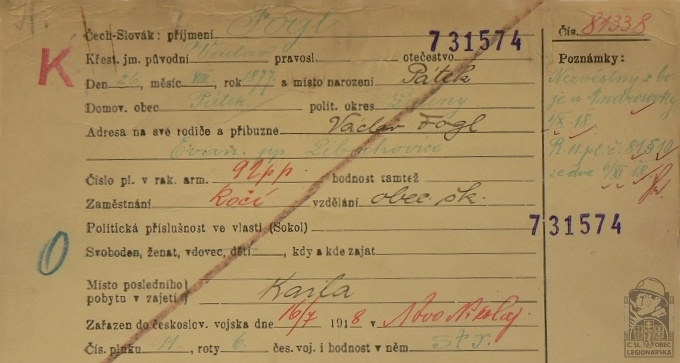 Čech-Slovák: příjmení Fogl Čís. 81338
731574
K
Křest. jm. původní Václav pravosl. otečestvo Poznámky:
Den 26, měsíc VIII, rok 1877 a místo narození Pátek
Domov. obec Pátek polit. okres Louny
Adresa na své rodiče a příbuzné Václav Fogl
Libochovice
Číslo pl. v rak. arm. 92pp. hodnost tamtéž
Zaměstnání Kočí vzdělání obec. šk.
Politická příslušnost ve vlasti (Sokol)
731574
O
Svoboden, ženat, vdovec, dětí, kdy a kde zajat
Místo posledního pobytu v zajetí Kaila
Zařazen do českoslov. vojska dne 16/7 1918 v Novo Nikolaj
Čís. pluku 11, roty 6 čes. voj. i hodnost v něm stř.
Nezvěstný z boje u
IX. 18.
R. 11. pl. č. 81510
ze dne XI 18
Č SL. OBEC
LEGIONÁŘSKÁ